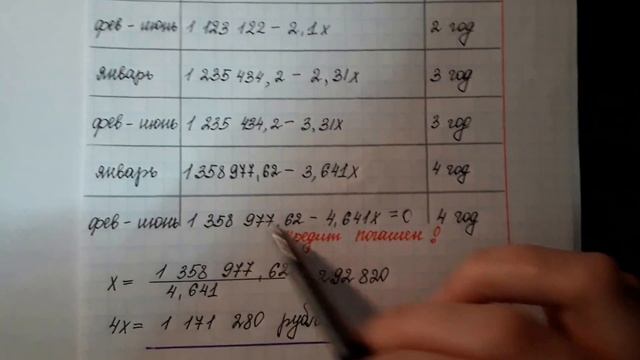 фев-июнь 1 123 122 - 2,1x 2 год
январь 1 235 434,2 - 2,31x 3 год
фев-июнь 1 235 434,2 - 3,31x 3 год
январь 1 358 977,62 - 3,641x 4 год
фев-июнь 1 358 977,62 - 4,641x = 0 4 год
кредит погашен!
x = 1 358 977,62 292 820
4,641
4x = 1 171 280